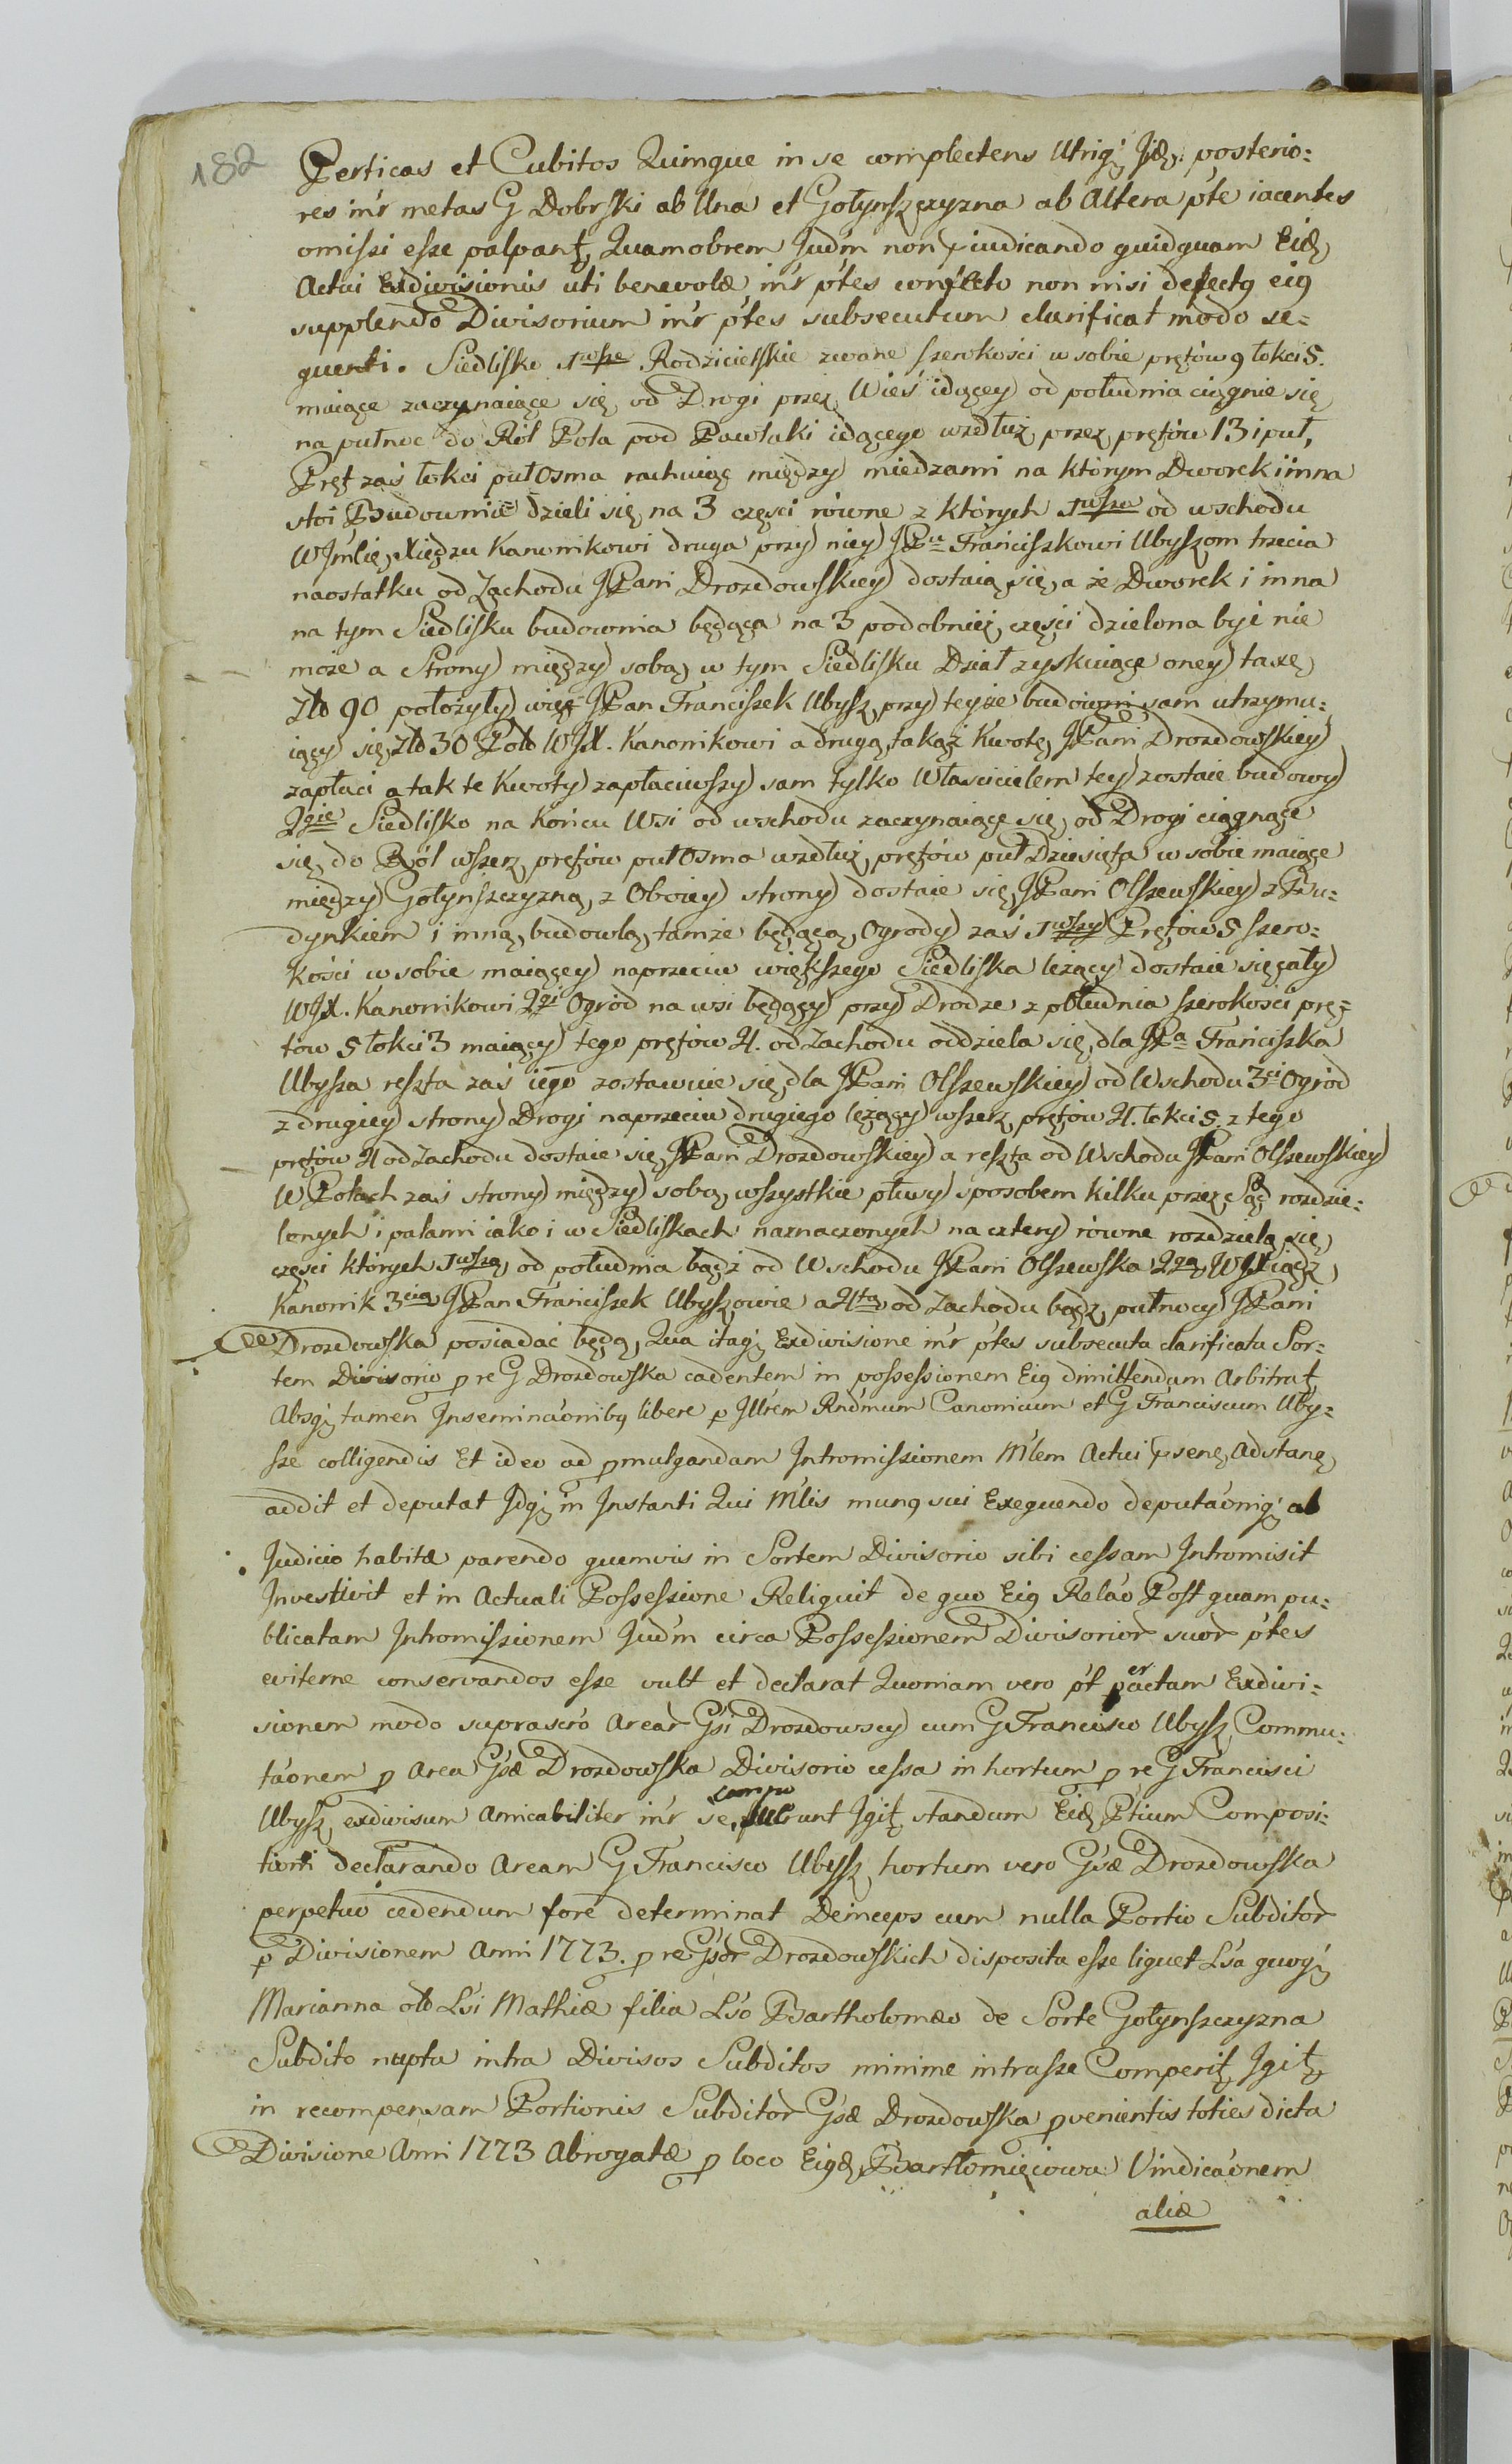 182
Perticas et Cubitos Quinque in se complectens Utriq; posterio:
res in'r metas G Dobrski ab Una et Gołynszczyzna ab Altera p'te iacentes
omissi esse palpant, Quamobrem Jud'm non p'iudicando quidquam Eid,
Actui Exdivisionis uti benevolæ in'r p'tes confecto non nisi defectq eiq
supplendo Divisorium in'r p'tes subsecutum clarificat modo se=
quenti. Siedlisko 1wsze Rodzicielskie zwane szerokości w sobie prętów 9 łokci 5.
maiące zaczynaiące się od Drogi przez Wieś idącey od południa ciągnie się
na pułnoc do Ról Pola pod Pawłaki idącego wzdłuż przez prętów 13 i puł,
Pręt zaś łokci puł osma rachuiąc między miedzami na którym Dworek i inna
stoi Budownia dzieli się na 3 części równe z których 1wsza od wschodu
WJmci Xiędzu Kanonikowi druga przy niey JPu Franciszkowi Ubyszom trzecia
naostatku od Zachodu JPani Drozdowskiey dostaią się, a że Dworek i inna
na tym Siedlisku budownia będąca na 3 podobnież części dzielona być nie
może a Strony między sobą w tym Siedlisku Dział zyskuiące oney taxę
Zło 90 położyły więc JPan Franciszek Ubysz przy teyże budowni sam utrzymu:
iący się Zło 30 Polo WJX. Kanonikowi a drugą takąż Kwotę JPani Drozdowskiey
zapłaci a tak te Kwoty zapłaciwszy sam tylko Właścicielem tey zostaie budowy
2gie Siedlisko na końcu Wsi od wschodu zaczynaiące się od Drogi ciągnące
się do Ról wszerz prętów puł osma wzdłuż prętów puł Dziesięta w sobie maiące
między Gołynszczyzną z Oboiey strony dostaie się JPani Olszewskiey z Bu:
dynkiem i inną budowlą tamże będącą, Ogrody zaś 1wszy Prętów 5 szero=
kości w sobie maiącey naprzeciw większego Siedliska leżący dostaie się cały
WJX. Kanonikowi 2gi Ogród na wsi będący przy Drodze z południa szerokości prę=
tów 5 łokci 3 maiący tego prętów 4. od Zachodu oddziela się dla JPa Franciszka
Ubysza reszta zaś iego zostawuie się dla JPani Olszewskiey od Wschodu 3ci Ogród
z drugiey strony Drogi naprzeciw drugiego leżący wszerz prętów 4. łokci 5. z tego
prętów 4 od Zachodu dostaie się JPani Drozdowskiey a reszta od Wschodu JPani Olszewskiey
W Polach zaś strony między sobą wszystkie płusy sposobem kilku przez Sąd rozdzie:
lonych i palami iako i w Siedliskach naznaczonych na cztery równe rozdzielą się
części których 1wszą od południa bądź od Wschodu JPani Olszewska 2gą WJXiądz
Kanonik 3cią JPan Franciszek Ubyszowie a 4tą od Zachodu bądź pułnocy JPani
Drozdowska posiadać będą, Qua itaq; Exdivisione in'r p'tes subsecuta clarificata Sor=
tem Divisorio p re G Drozdowska cadentem in possessionem Eiq dimittendam Arbitrat
Absq; tamen Inseminaõnibq libere p Jllrem Rndmum Canonicum et G Franciscum Uby=
sze colligendis Et ideo ad pmulgandam Intromissionem M'lem Actui p'sente Adstane
addit et deputat Jdq; in Instanti Qui M'lis munq sui Exequendo deputaõniq; ab
Judicio habitæ parendo quemvis in Sortem Divisorio sibi cessam Intromisit
Investivit et in Actuali Possessione Reliquit de quo Eiq Relaõ Post quam pu:
blicatam Intromissionem Jud'm circa Possessionem Divisorior suor p'tes
eviterne conservandos esse vult et declarat Quoniam vero p't peractam Exdivi=
sionem modo suprascro Arear Gsi Drozdowscy cum G Francisco Ubysz Commu:
taõnem p Area Gsæ Drozdowska Divisorio cessa in hortum p re G Francisci
Ubysz exdivisum Amicabiliter in'r se, compo suerunt Igit standum Eid Ptium Composi=
tioni declarando Aream G Francisco Ubysz hortum vero Gsæ Drozdowska
perpetuo cedendum fore determinat Deinceps cum nulla Portio Subditor
p Divisionem Anni 1773. p re Gsor Drozdowskich disposita esse liquet Lsa quoq;
Marianna olo Lsi Mathiæ filia Lso Bartholomæo de Sorte Gołynszczyzna
Subdito nupta intra Divisos Subditos minime intrasse Comperit, Igit
in recompensam Portionis Subditor Gsæ Drozdowska pvenientis toties dicta
Divisione Anni 1773 Abrogatæ p loco Eiqd Bartłomięiowa Vindicaõnem
aliæ